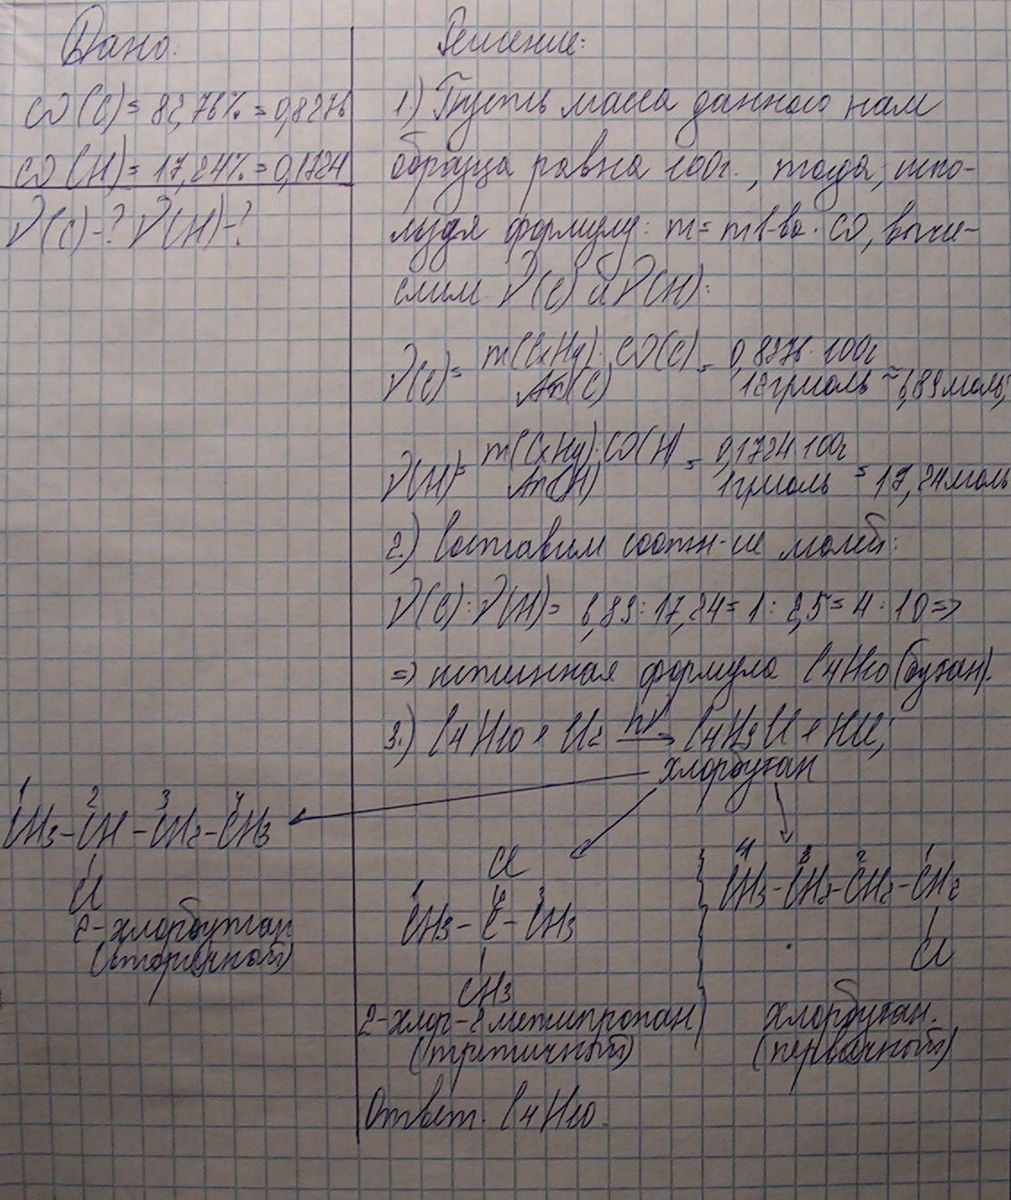 Дано:
ω(C)=82,76%=0,8276
ω(H)=17,24%=0,1724
ν(C)-? ν(H)-?
Решение:
1.) Пусть масса данного нам
образца равна 100г., тогда, испо-
льзуя формулу: m=mв-ва·ω, вычи-
слим ν(C) и ν(H):
ν(C)= m(CxHy)·ω(C) = 0,8276·100г
Ar(C) 12г/моль ≈6,89моль;
ν(H)= m(CxHy)·ω(H) = 0,1724·100г
Ar(H) 1г/моль = 17,24моль
2.) Составим соотн-ие молей:
ν(C):ν(H)= 6,89:17,24=1:2,5=4:10=>
=> истинная формула C4H10 (бутан).
3.) C4H10+Cl2 hν → C4H9Cl+HCl;
хлорбутан
1 2 3 4
CH3-CH-CH2-CH3
Cl
2-хлорбутан
(вторичный)
Cl
1 2 3
CH3-C-CH3
CH3
2-хлор-2метилпропан
(третичный)
4 3 2 1
CH3-CH2-CH2-CH2
Cl
хлорбутан.
(первичный)
Ответ. C4H10.